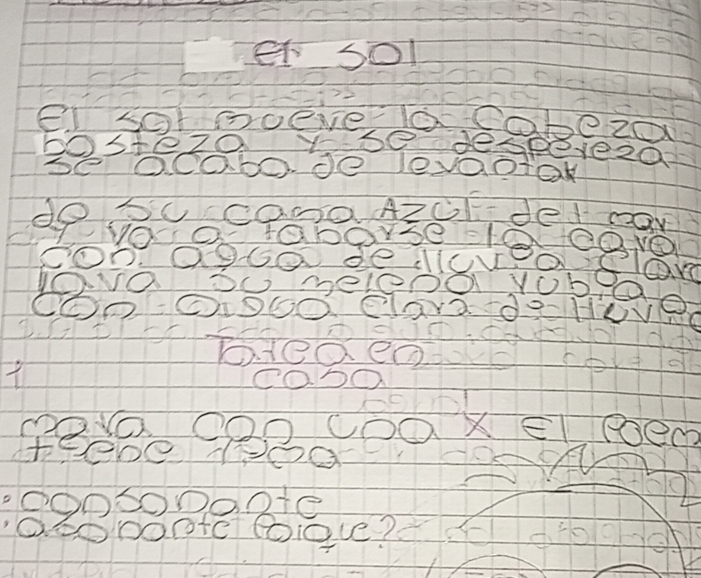 el sol
El sol mueve la Cabeza
bosteza y se despereza
se acaba de levantar
de su cama Azul del mar
y va a labarse la cara
con agua de lluvia clara
lava su melena rubia
con agua clara de lluvia
Tarea en
casa
marca con una X El Poema
tiene rima
• consonante
• asonante Porque?